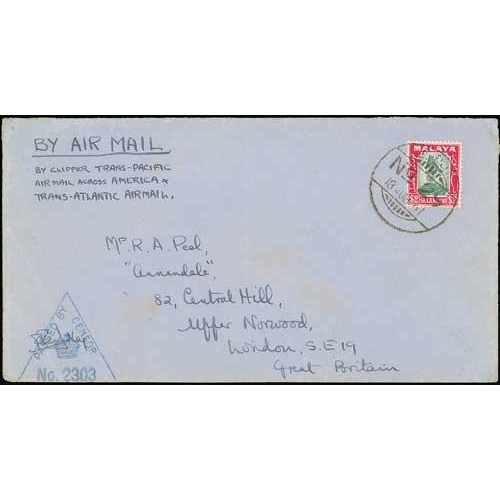 BY AIR MAIL
BY CLIPPER TRANS-PACIFIC
AIRMAIL ACROSS AMERICA &
TRANS-ATLANTIC AIRMAIL.
MALAYA
$2 SELANGOR $2
Mr. R. A. Peal,
"Annandale",
82, Central Hill,
Upper Norwood,
London, S.E 19
Great Britain
PASSED BY CENSOR
No. 2303